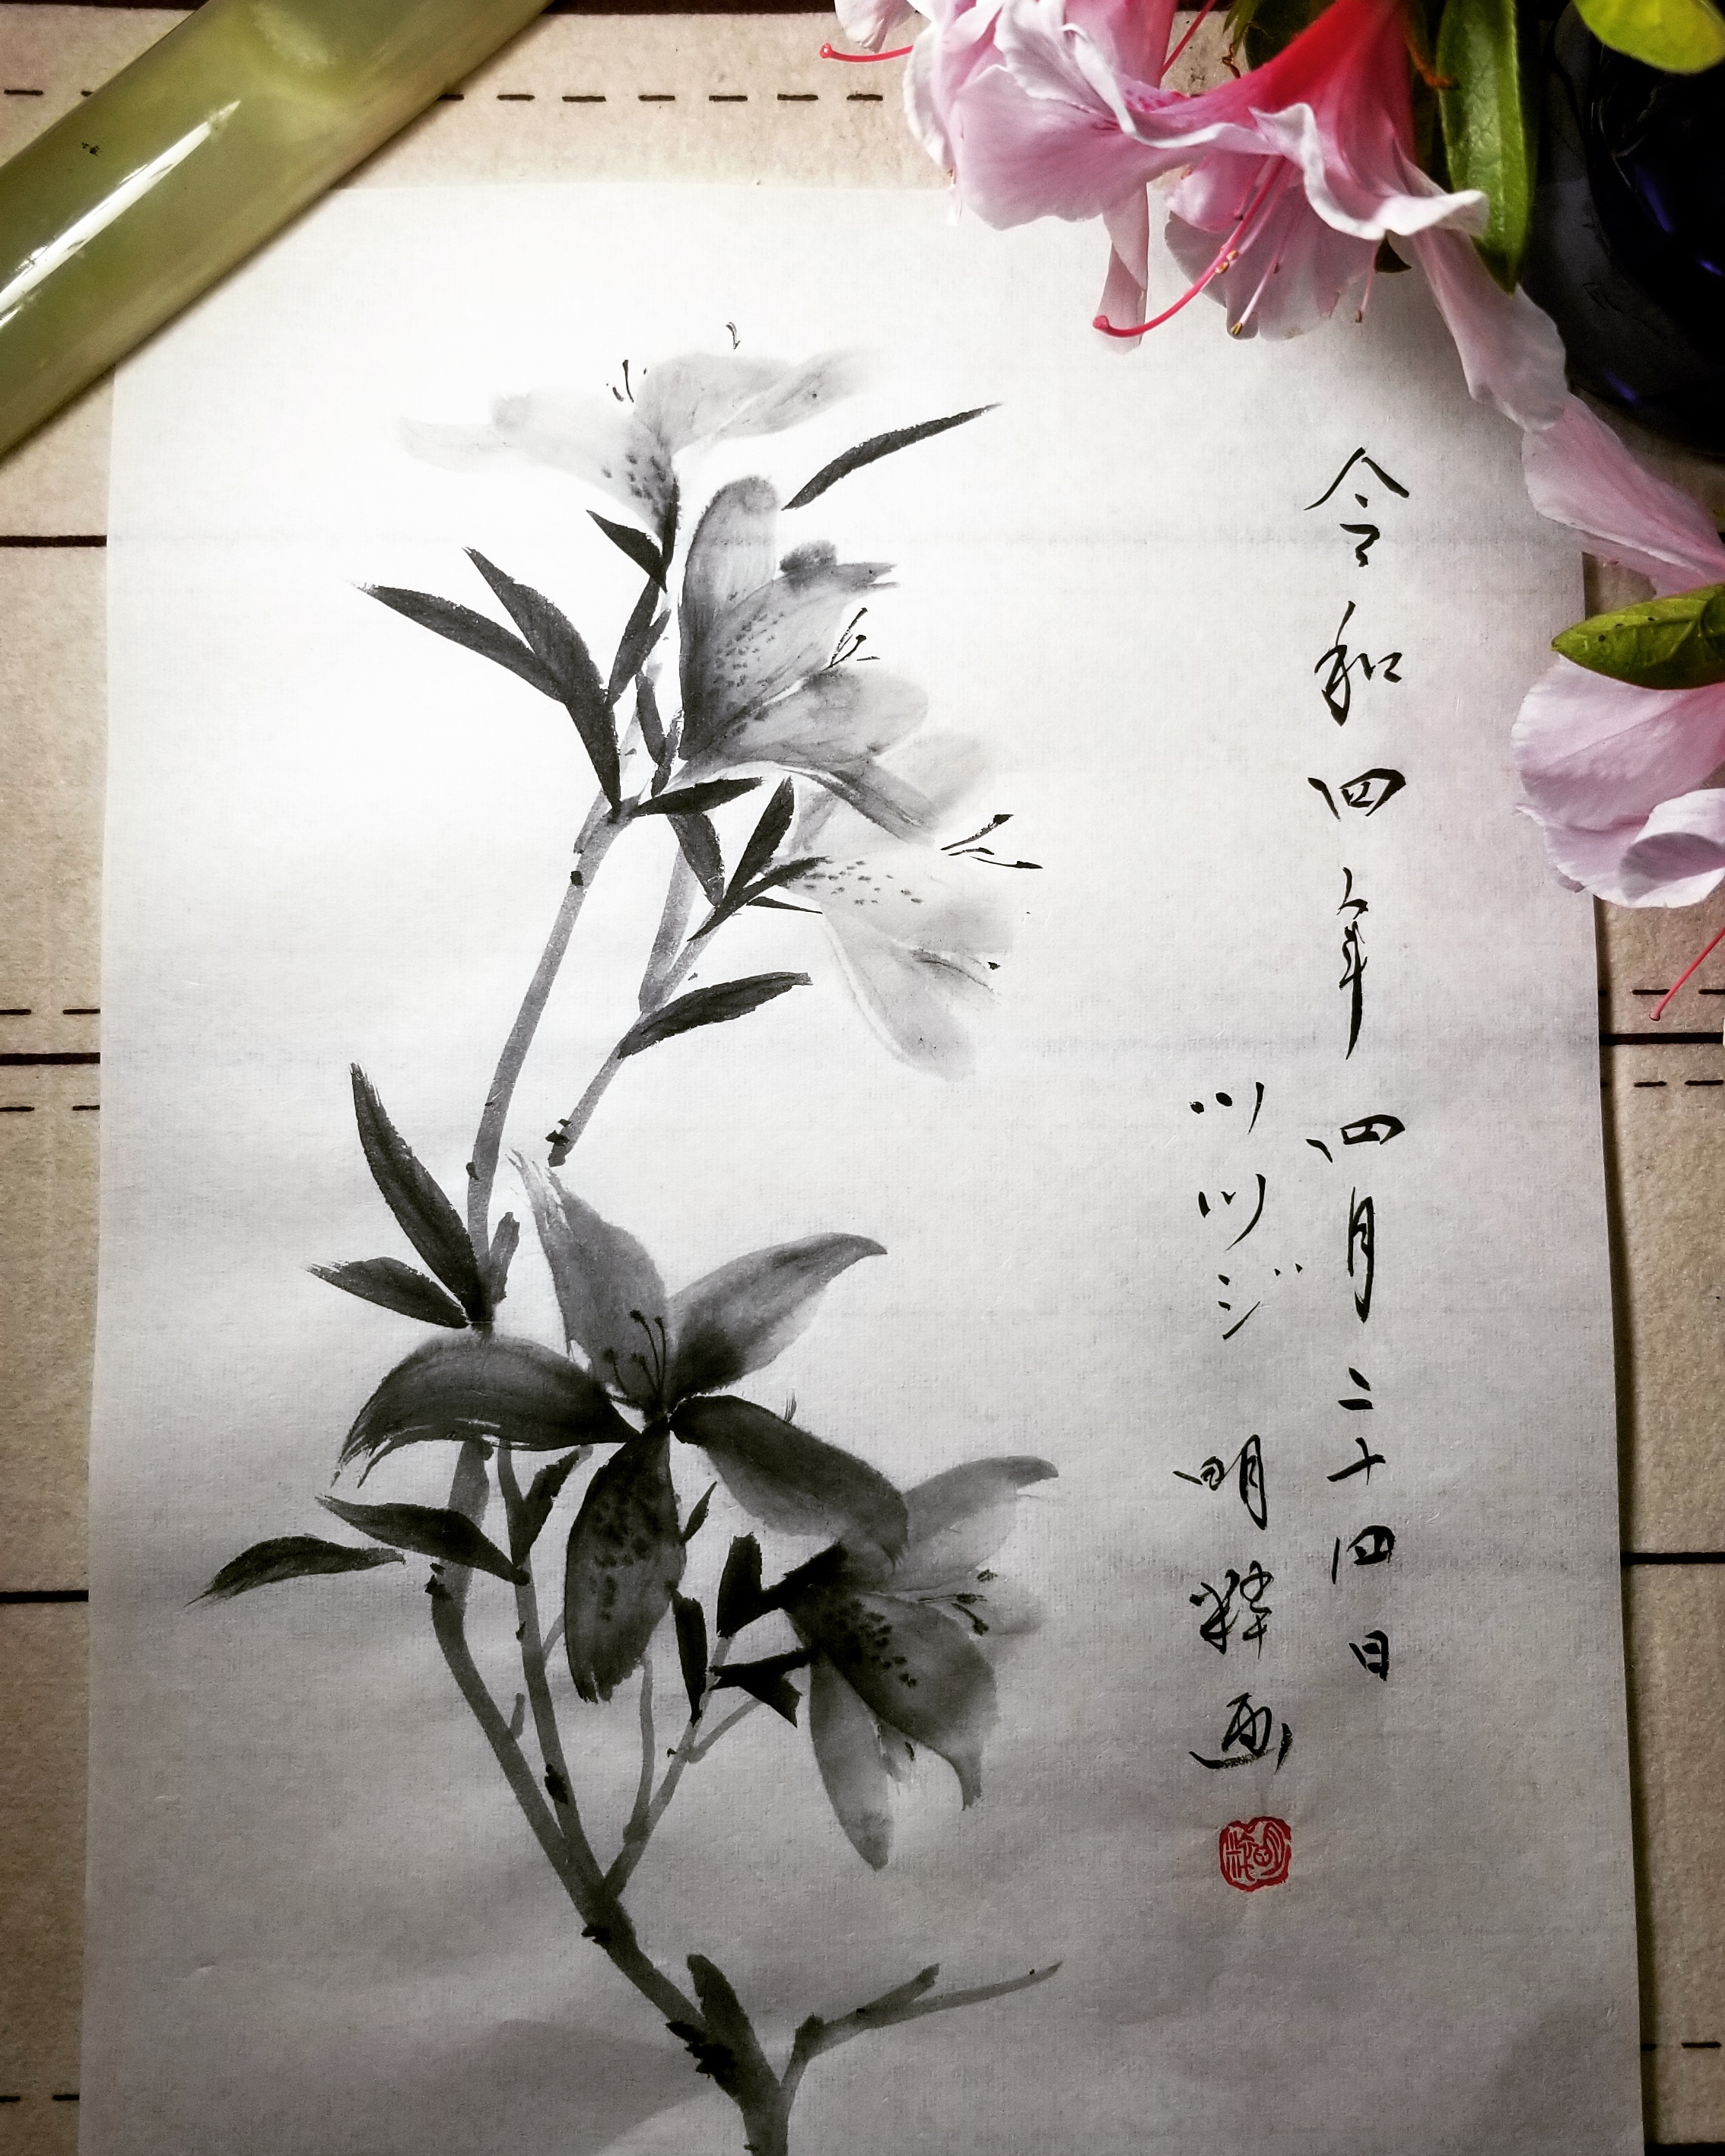 令和四年四月二十四日
ツツジ 明粋画